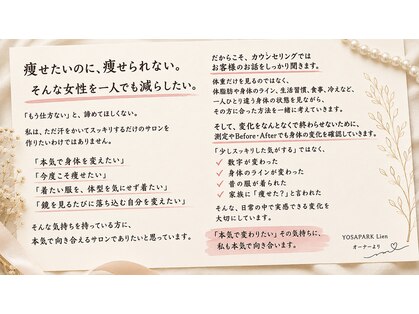 痩せたいのに、痩せられない。
そんな女性を一人でも減らしたい。
「もう仕方ない」と、諦めてほしくない。
私は、ただ汗をかいてスッキリするだけのサロンを
作りたいわけではありません。
「本気で身体を変えたい」
「今度こそ痩せたい」
「着たい服を、体型を気にせず着たい」
「鏡を見るたびに落ち込む自分を変えたい」
そんな気持ちを持っている方に、
本気で向き合えるサロンでありたいと思っています。
だからこそ、カウンセリングでは
お客様のお話をしっかり聞きます。
体重だけを見るのではなく、
体脂肪や身体のライン、生活習慣、食事、冷えなど、
一人ひとり違う身体の状態を見ながら、
その方に合った方法を一緒に考えていきます。
そして、変化をなんとなくで終わらせないために、
測定やBefore・Afterでも身体の変化を確認していきます。
「少しスッキリした気がする」ではなく、
✓ 数字が変わった
✓ 身体のラインが変わった
✓ 昔の服が着られた
✓ 家族に「痩せた？」と言われた
そんな、日常の中で実感できる変化を
大切にしています。
「本気で変わりたい」その気持ちに、
私も本気で向き合います。
YOSAPARK Lien
オーナーより